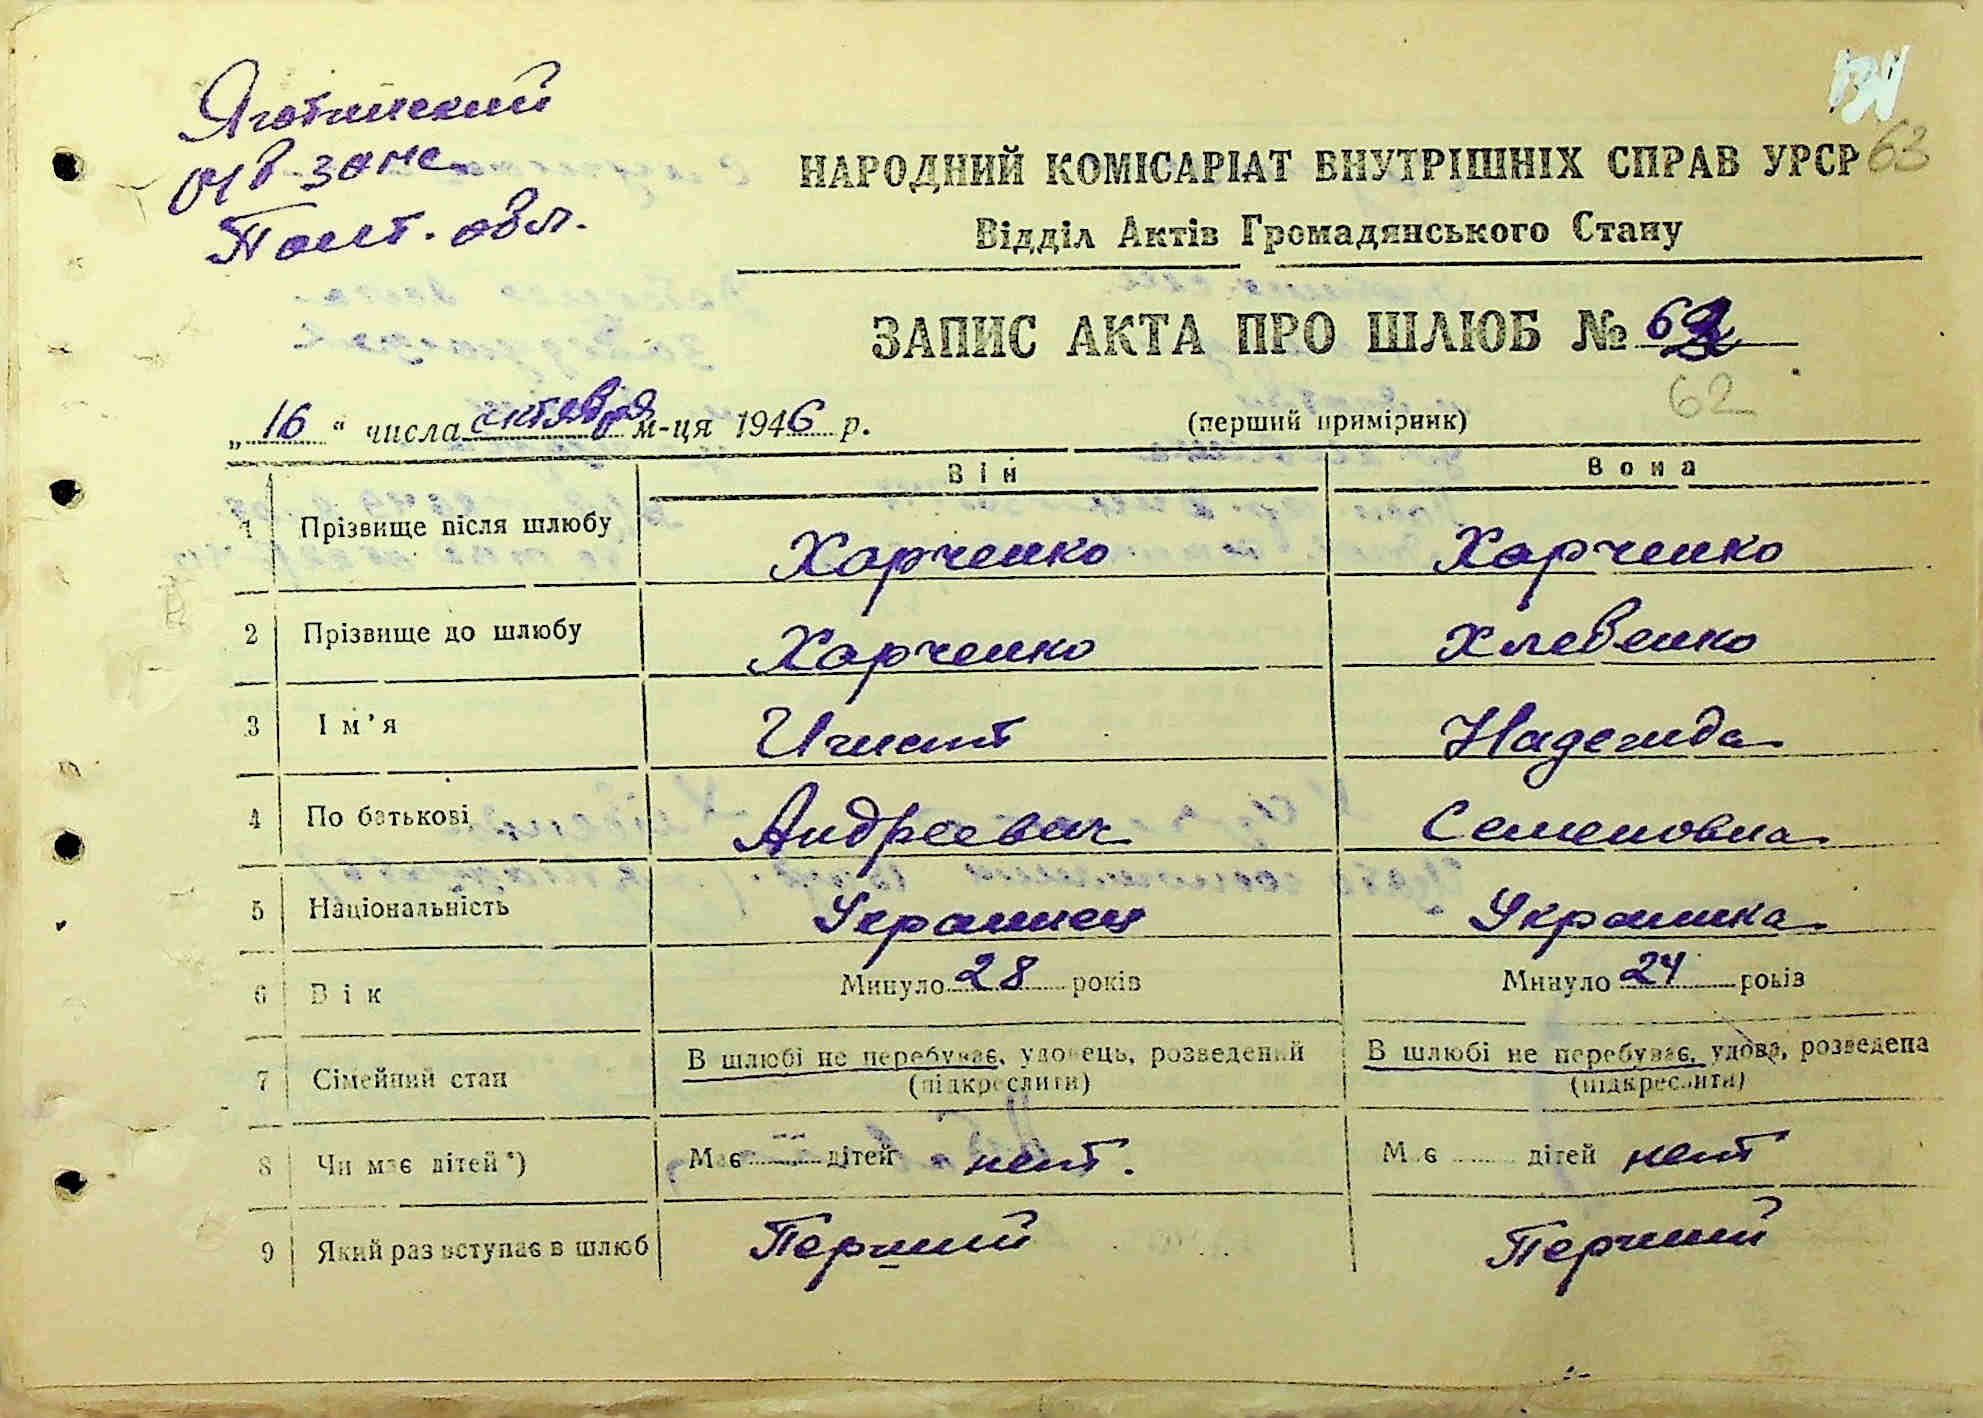 Яготинский
Полт. обл.
63
НАРОДНИЙ КОМІСАРІАТ ВНУТРІШНІХ СПРАВ УРСР
Відділ Актів Громадянського Стану
ЗАПИС АКТА ПРО ШЛЮБ № 62
62
„16“ числа октября м-ця 1946 р. (перший примірник)
Він Вона
1 Прізвище після шлюбу Харченко Харченко
2 Прізвище до шлюбу Харченко Хлевенко
3 Ім’я Игнат Надежда
4 По батькові Андреевич Семеновна
5 Національність Украинец Украинка
6 Вік Минуло 28 років Минуло 24 років
7 Сімейний стан В шлюбі не перебуває, удовець, розведений В шлюбі не перебуває, удова, розведена
(підкреслити) (підкреслити)
8 Чи має дітей *) Має дітей нет. Має дітей нет
9 Який раз вступає в шлюб Перший Перший